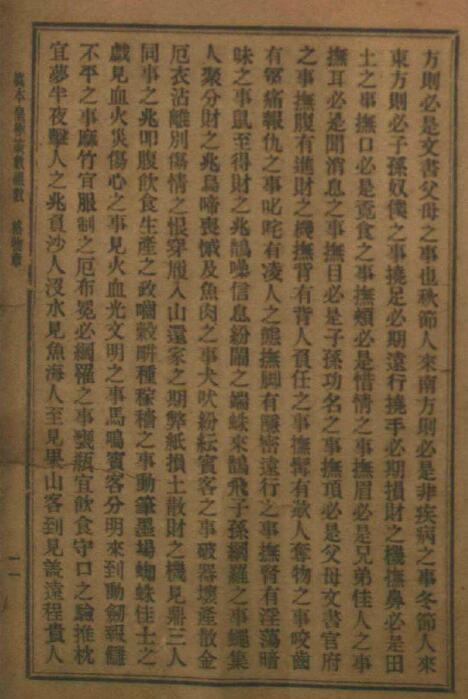 方則必是文書父母之事也秋節人來南方則必是非疾病之事冬節人來
東方則必子孫奴僕之事撓足必期遠行撓手必期損財之機撫鼻必是田
土之事撫口必是竟食之事撫頰必是惜情之事撫眉必是兄弟佳人之事
撫耳必是聞消息之事撫目必是子孫功名之事撫頂必是父母文書官府
之事撫腹有進財之機撫背有背人負任之事撫臀有欲人奪物之事咬齒
有冤痛報仇之事叱咤有凌人之態撫脚有隱密遠行之事撫腎有淫蕩暗
昧之事鼠至得財之兆鵲噪信息紛鬧之端蛛來鵲飛子孫網羅之事蠅集
人聚分財之兆烏啼喪慽及魚肉之事犬吠紛紜賓客之事破器壞產散金
厄衣沾離別傷情之恨穿履入山還家之期弊紙損土散財之機見鼎三人
同事之兆叩腹飲食生產之政嚙穀畊種稼穡之事動筆墨場蜘蛛佳士之
戲見血火災傷心之事見火血光文明之事馬鳴賓客分明來到動劒報讎
不平之事麻竹宜服制之厄布冕必網羅之事甕瓶宜飲食守口之驗推枕
宜夢半夜擊人之兆負沙人沒水見魚海人至見果山客到見盖遠程貴人
眞本皇極策數祖數 格物章
二